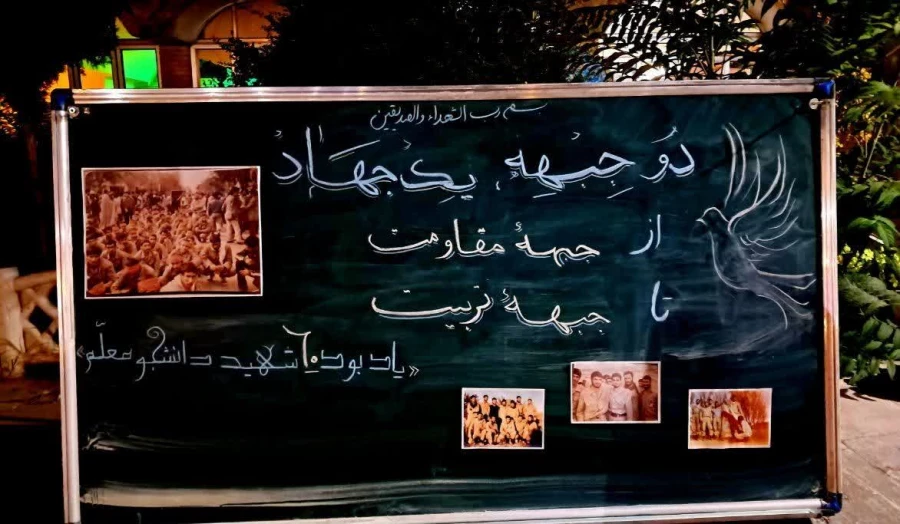 بسم رب الشهداء والصدیقین
دو جبهه، یک جهاد
از جبههٔ مقاومت
تا جبههٔ تربیت
«یادبود ۶۰ شهید دانشجو معلّم»